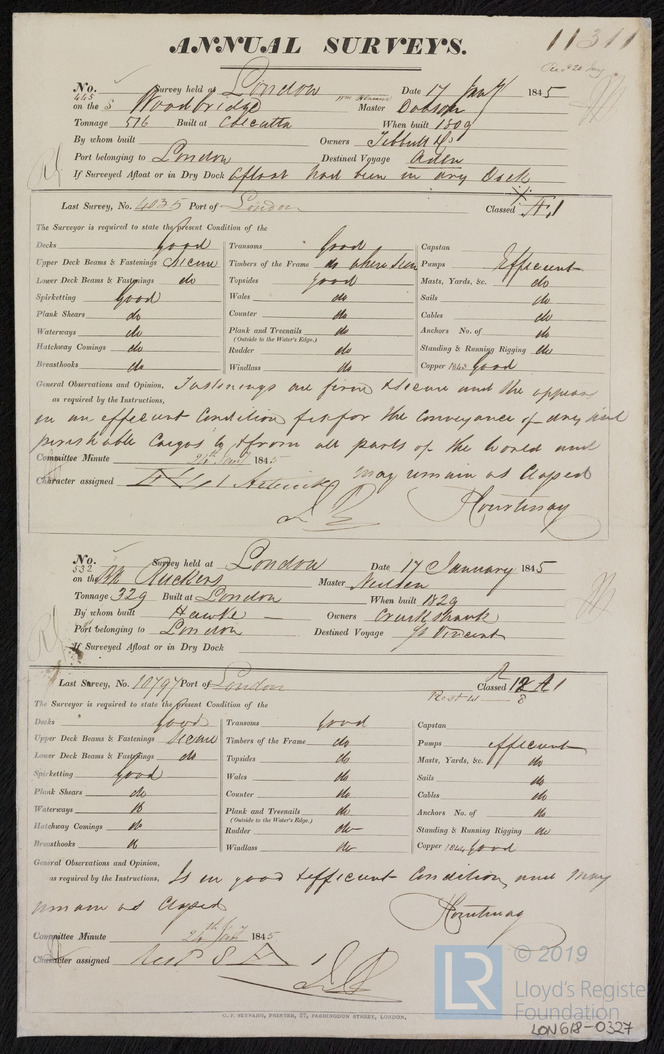 ANNUAL SURVEYS.
11311
No. 445 Survey held at London Date 17 Jany 1845
on the S Woodbridge Master Dobson
Tonnage 516 Built at Calcutta When built 1809
By whom built Owners Tebbutt & Co
Port belonging to London Destined Voyage Aden
If Surveyed Afloat or in Dry Dock afloat had been in dry Dock
Last Survey, No. 4035 Port of London Classed Æ 1
The Surveyor is required to state the present Condition of the
Decks Good Transoms Good Capstan
Upper Deck Beams & Fastenings Secure Timbers of the Frame do where seen Pumps Efficient
Lower Deck Beams & Fastenings do Topsides Good Masts, Yards, &c. do
Spirketting Good Wales do Sails do
Plank Shears do Counter do Cables do
Waterways do Plank and Treenails do Anchors No. of do
(Outside to the Water's Edge.)
Hatchway Comings do Rudder do Standing & Running Rigging do
Breasthooks do Windlass do Copper 1843 Good
General Observations and Opinion, Fastenings are firm & secure and the appears
as required by the Instructions,
in an efficient Condition fit for the Conveyance of dry and
perishable Cargos to & from all parts of the World and
may remain as Classed
Committee Minute 24th Jany 1845
Character assigned Æ 1
Courtenay
No. 532 Survey held at London Date 17 January 1845
on the Bk Ruckers Master Neilson
Tonnage 329 Built at London When built 1829
By whom built Hawke Owners Cruikshank
Port belonging to London Destined Voyage St Vincent
If Surveyed Afloat or in Dry Dock
Last Survey, No. 10797 Port of London Classed 12 A 1
Rest 41 8
The Surveyor is required to state the present Condition of the
Decks Good Transoms Good Capstan
Upper Deck Beams & Fastenings Secure Timbers of the Frame do Pumps efficient
Lower Deck Beams & Fastenings do Topsides do Masts, Yards, &c. do
Spirketting Good Wales do Sails do
Plank Shears do Counter do Cables do
Waterways do Plank and Treenails do Anchors No. of do
(Outside to the Water's Edge.)
Hatchway Comings do Rudder do Standing & Running Rigging do
Breasthooks do Windlass do Copper 1844 Good
General Observations and Opinion,
as required by the Instructions, Is in good & efficient Condition and may
remain as Classed
Courtenay
Committee Minute 24th Jany 1845
Character assigned Rest 8 A 1
C. F. SEYFANG, PRINTER, 57, FARRINGDON STREET, LONDON.
LR © 2019
Lloyd's Registe
Foundation
LON618-0327